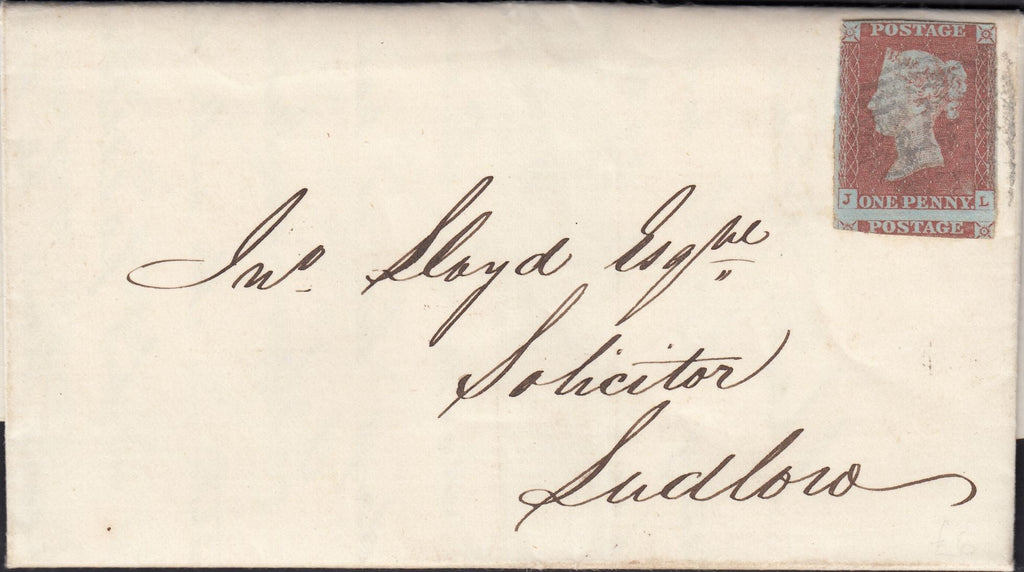 POSTAGE
J ONE PENNY. L
POSTAGE
Jno. Lloyd Esqre
Solicitor
Ludlow
£6